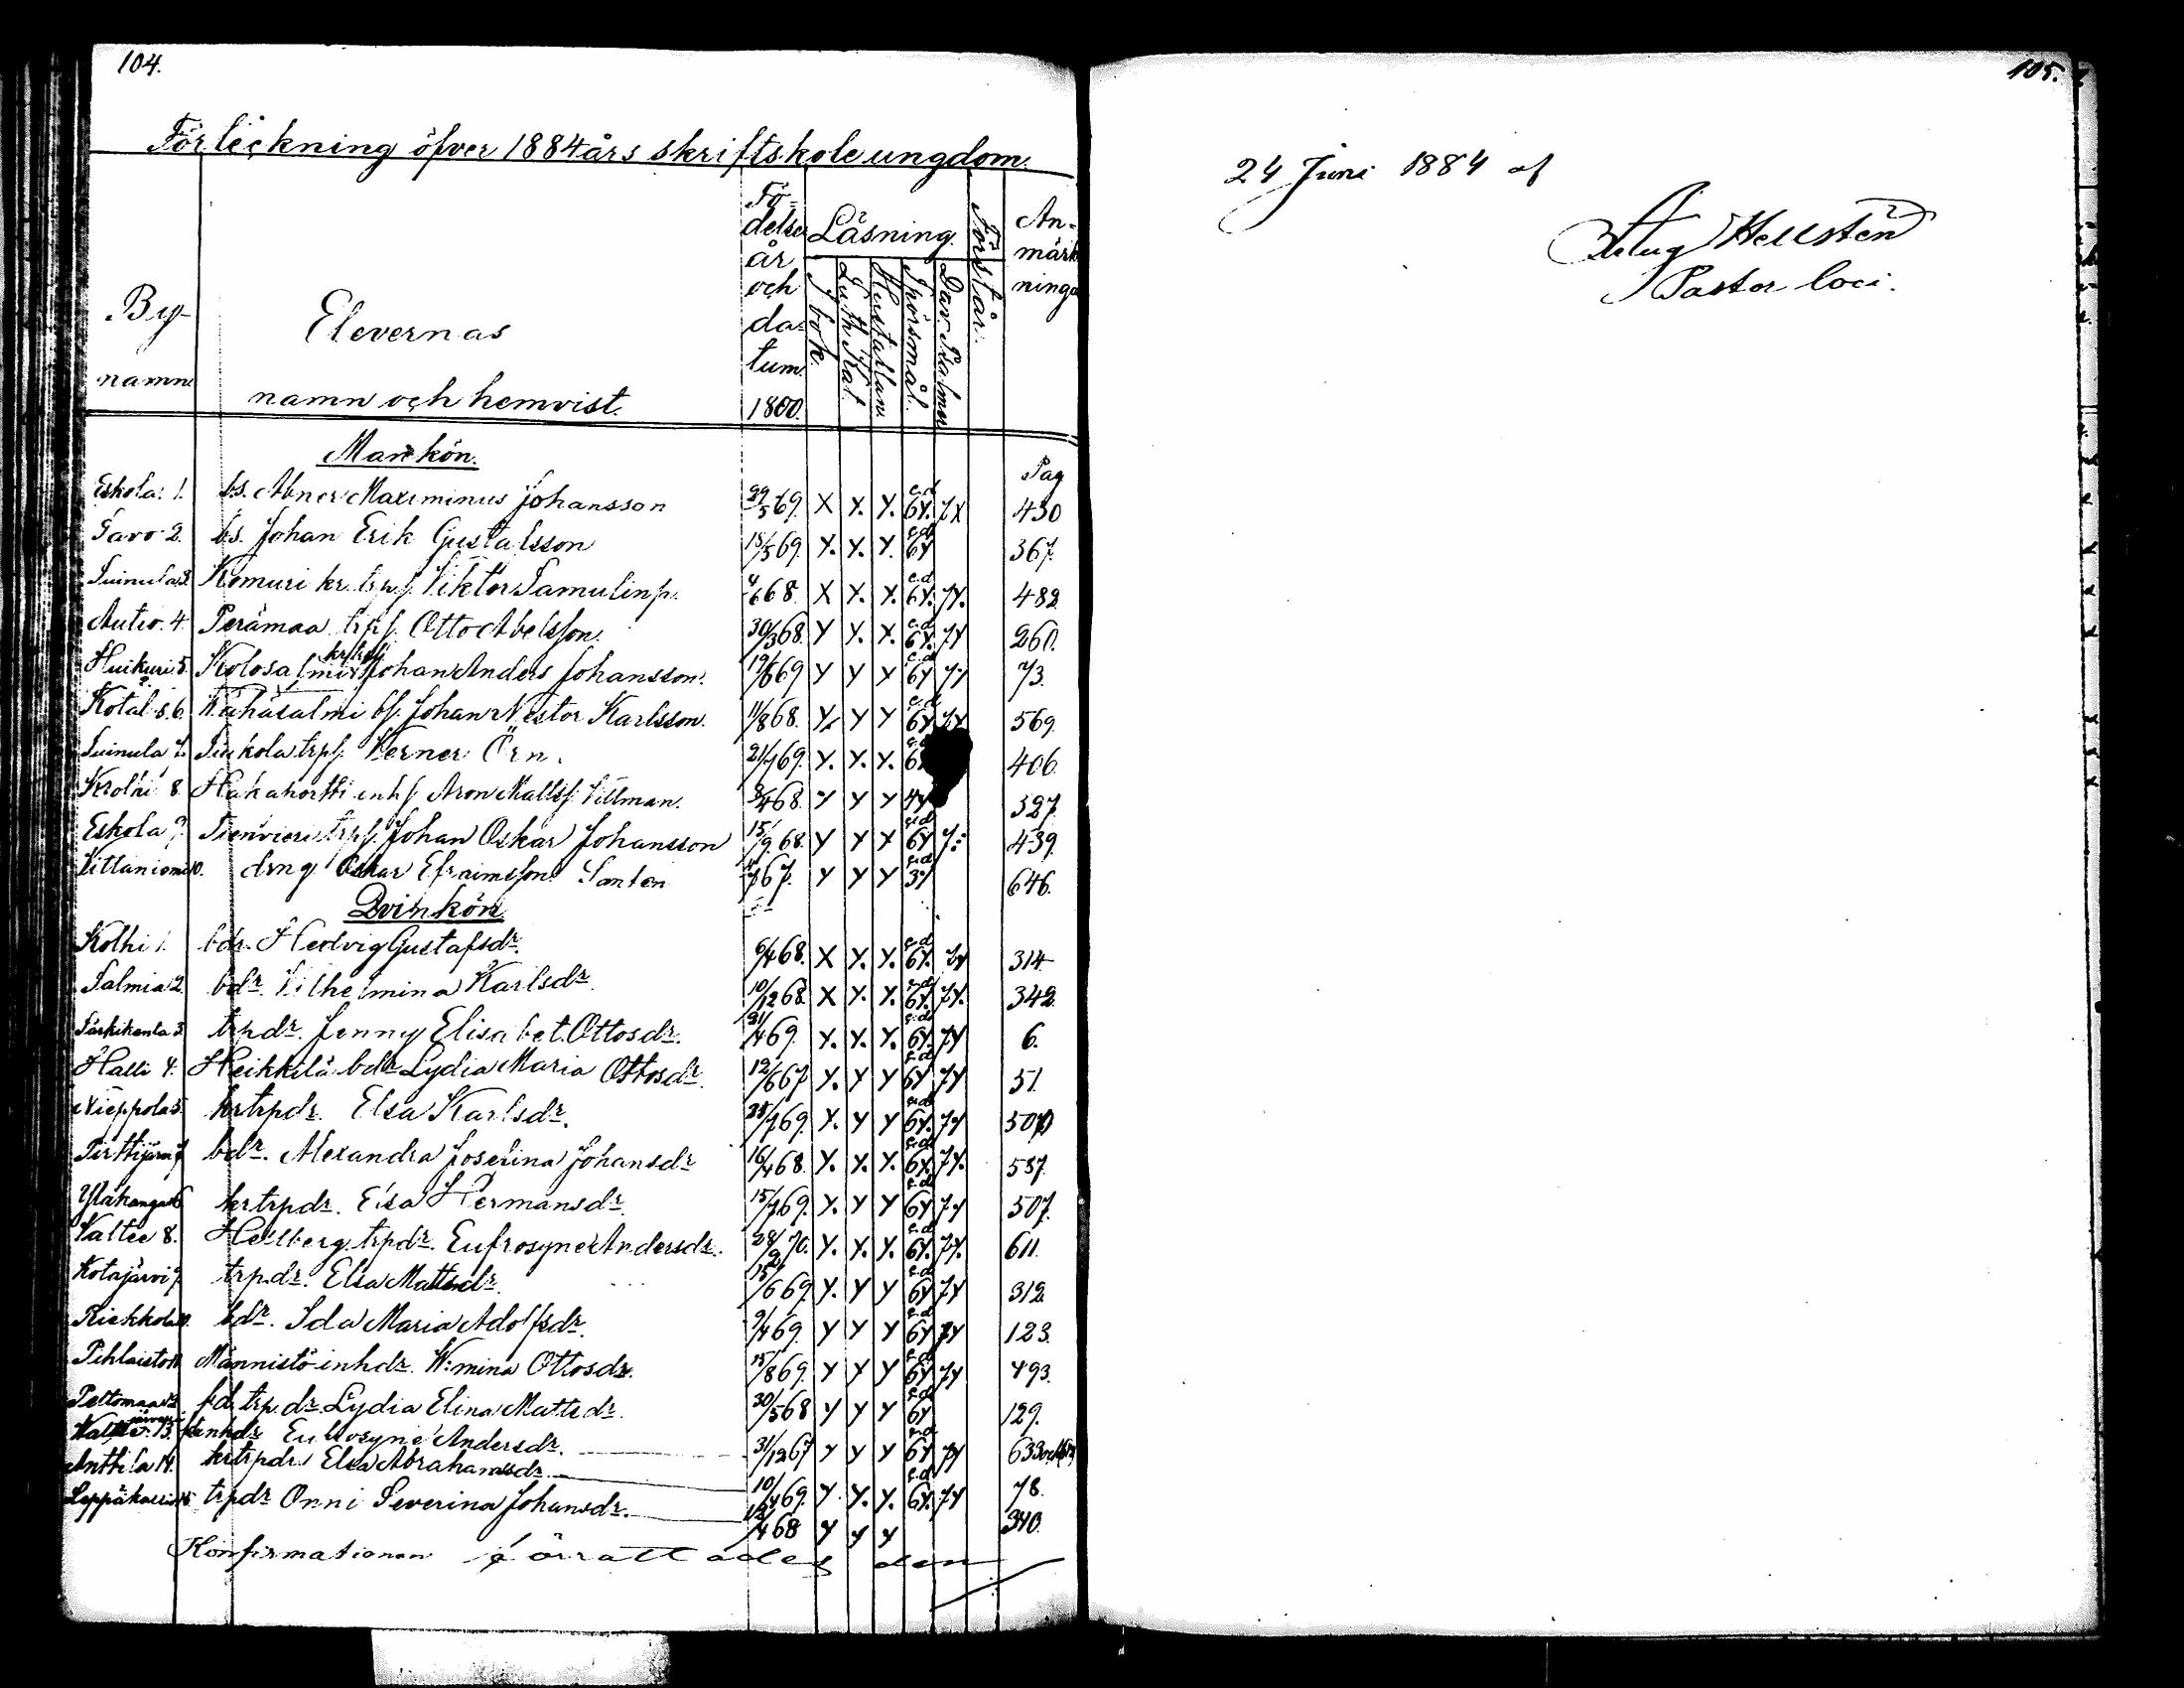 104.
Förteckning öfver 1884 års skriftskoleungdom.
By-
namn
Elevernas
namn och hemvist.
Fö-
delse
år
och
da-
tum.
1800.
Läsning.
I bok.
Luth. Kat.
Hustaflan
Spörsmål.
Dav. Psalmer
Förstår.
An-
märk
ninga
Mankön. Pag
Eskola 1. bs. Abner Maximinus Johansson 29/5 69. X Y. Y. c.d 6Y. 7X 430
Tavo 2. bs. Johan Erik Gustafsson 18/5 69. Y. Y. Y. c.d 6Y 367.
Suinula 3. Komuri kr. trp. s. Viktor Samulinp. 4/6 68. X X. X. c.d 6Y. 7Y. 482
Autio 4. Perämaa trp s. Otto Abelsson. 30/3 68. Y Y. X. c.d 6Y. 7Y 260.
Huikuri 5. Kolosalmi Johan Anders Johansson. 19/6 69 Y Y X c.d 6Y 7Y 73.
Kotal. s. 6. Wähäsalmi bs. Johan Nestor Karlsson. 11/8 68. Y Y Y c.d 6Y 7Y 569.
Suinula 7. trps. Verner Örn. 21/7 69. Y. Y. Y. 406.
8. Hakahortti inh s. Aron Matts s. Villman. 3/4 68. Y Y Y 4Y 327.
Eskola 9. trp s. Johan Oskar Johansson 15/9 68. Y Y X c.d 6Y 439.
10. drng Oskar Efraimsson 67. Y Y Y c.d 3Y 646.
Qvinkön
Kolhi 1. bdr. Hedvig Gustafsdr. 6/4 68. X Y. Y. c.d 6Y. 7Y 314
Salmia 2. bdr. Vilhelmina Karlsdr. 10/12 68. X Y. Y. c.d 6Y. 7Y. 342
3. trpdr. Jenny Elisabet Ottosdr. 21/4 69. Y. Y. Y. c.d 6Y 7Y 6.
Halli 4. Heikkilä bdr Lydia Maria Ottosdr. 12/6 67 Y. Y Y c.d 6Y 7Y 51.
Nieppola 5. krtrpdr. Elsa Karlsdr. 25/7 69. Y. Y Y c.d 6Y. 7Y
Pirttijärvi 7 bdr. Alexandra Josefina Johansdr 16/4 68. Y. Y. Y. c.d 6Y. 7Y. 587.
Yläkangas 6 krtrpdr. Elsa Hermansdr. 15/7 69. Y. Y Y c.d 6Y 7Y 507.
Valtee 8. Hellberg trpdr. Eufrosyne Andersdr. 28/2 70. Y. Y. Y. c.d 6Y. 7Y. 611.
Kotajärvi 9. trpdr. Elsa Mattsdr. 15/6 69. Y. Y Y c.d 6Y 7Y 312.
Riekkola 10. bdr. Ida Maria Adolfsdr. 9/4 69. Y Y Y c.d 6Y 7Y 123.
Pihlaisto 11. Männistö inhdr. W:mina Ottosdr. 15/8 69. Y Y Y c.d 6Y 7Y 493.
Peltomaa 12. trp. dr. Lydia Elina Mattsdr. 30/5 68 Y Y Y c.d 6Y 129.
13. inhdr Eufrosyne Andersdr. 31/12 67 Y Y Y c.d 6Y 7Y 633
Anttila 14. krtrpdr. Elsa Abrahamsdr. 10/4 69. Y. Y. Y. c.d 6Y. 7Y 78.
Leppäkallio 15. trpdr Onni Severina Johansdr. 12/4 68 Y Y Y 340.
Konfirmationen förrättades den
105.
24 Juni 1884 af
Aug Hellstén
Pastor loci.